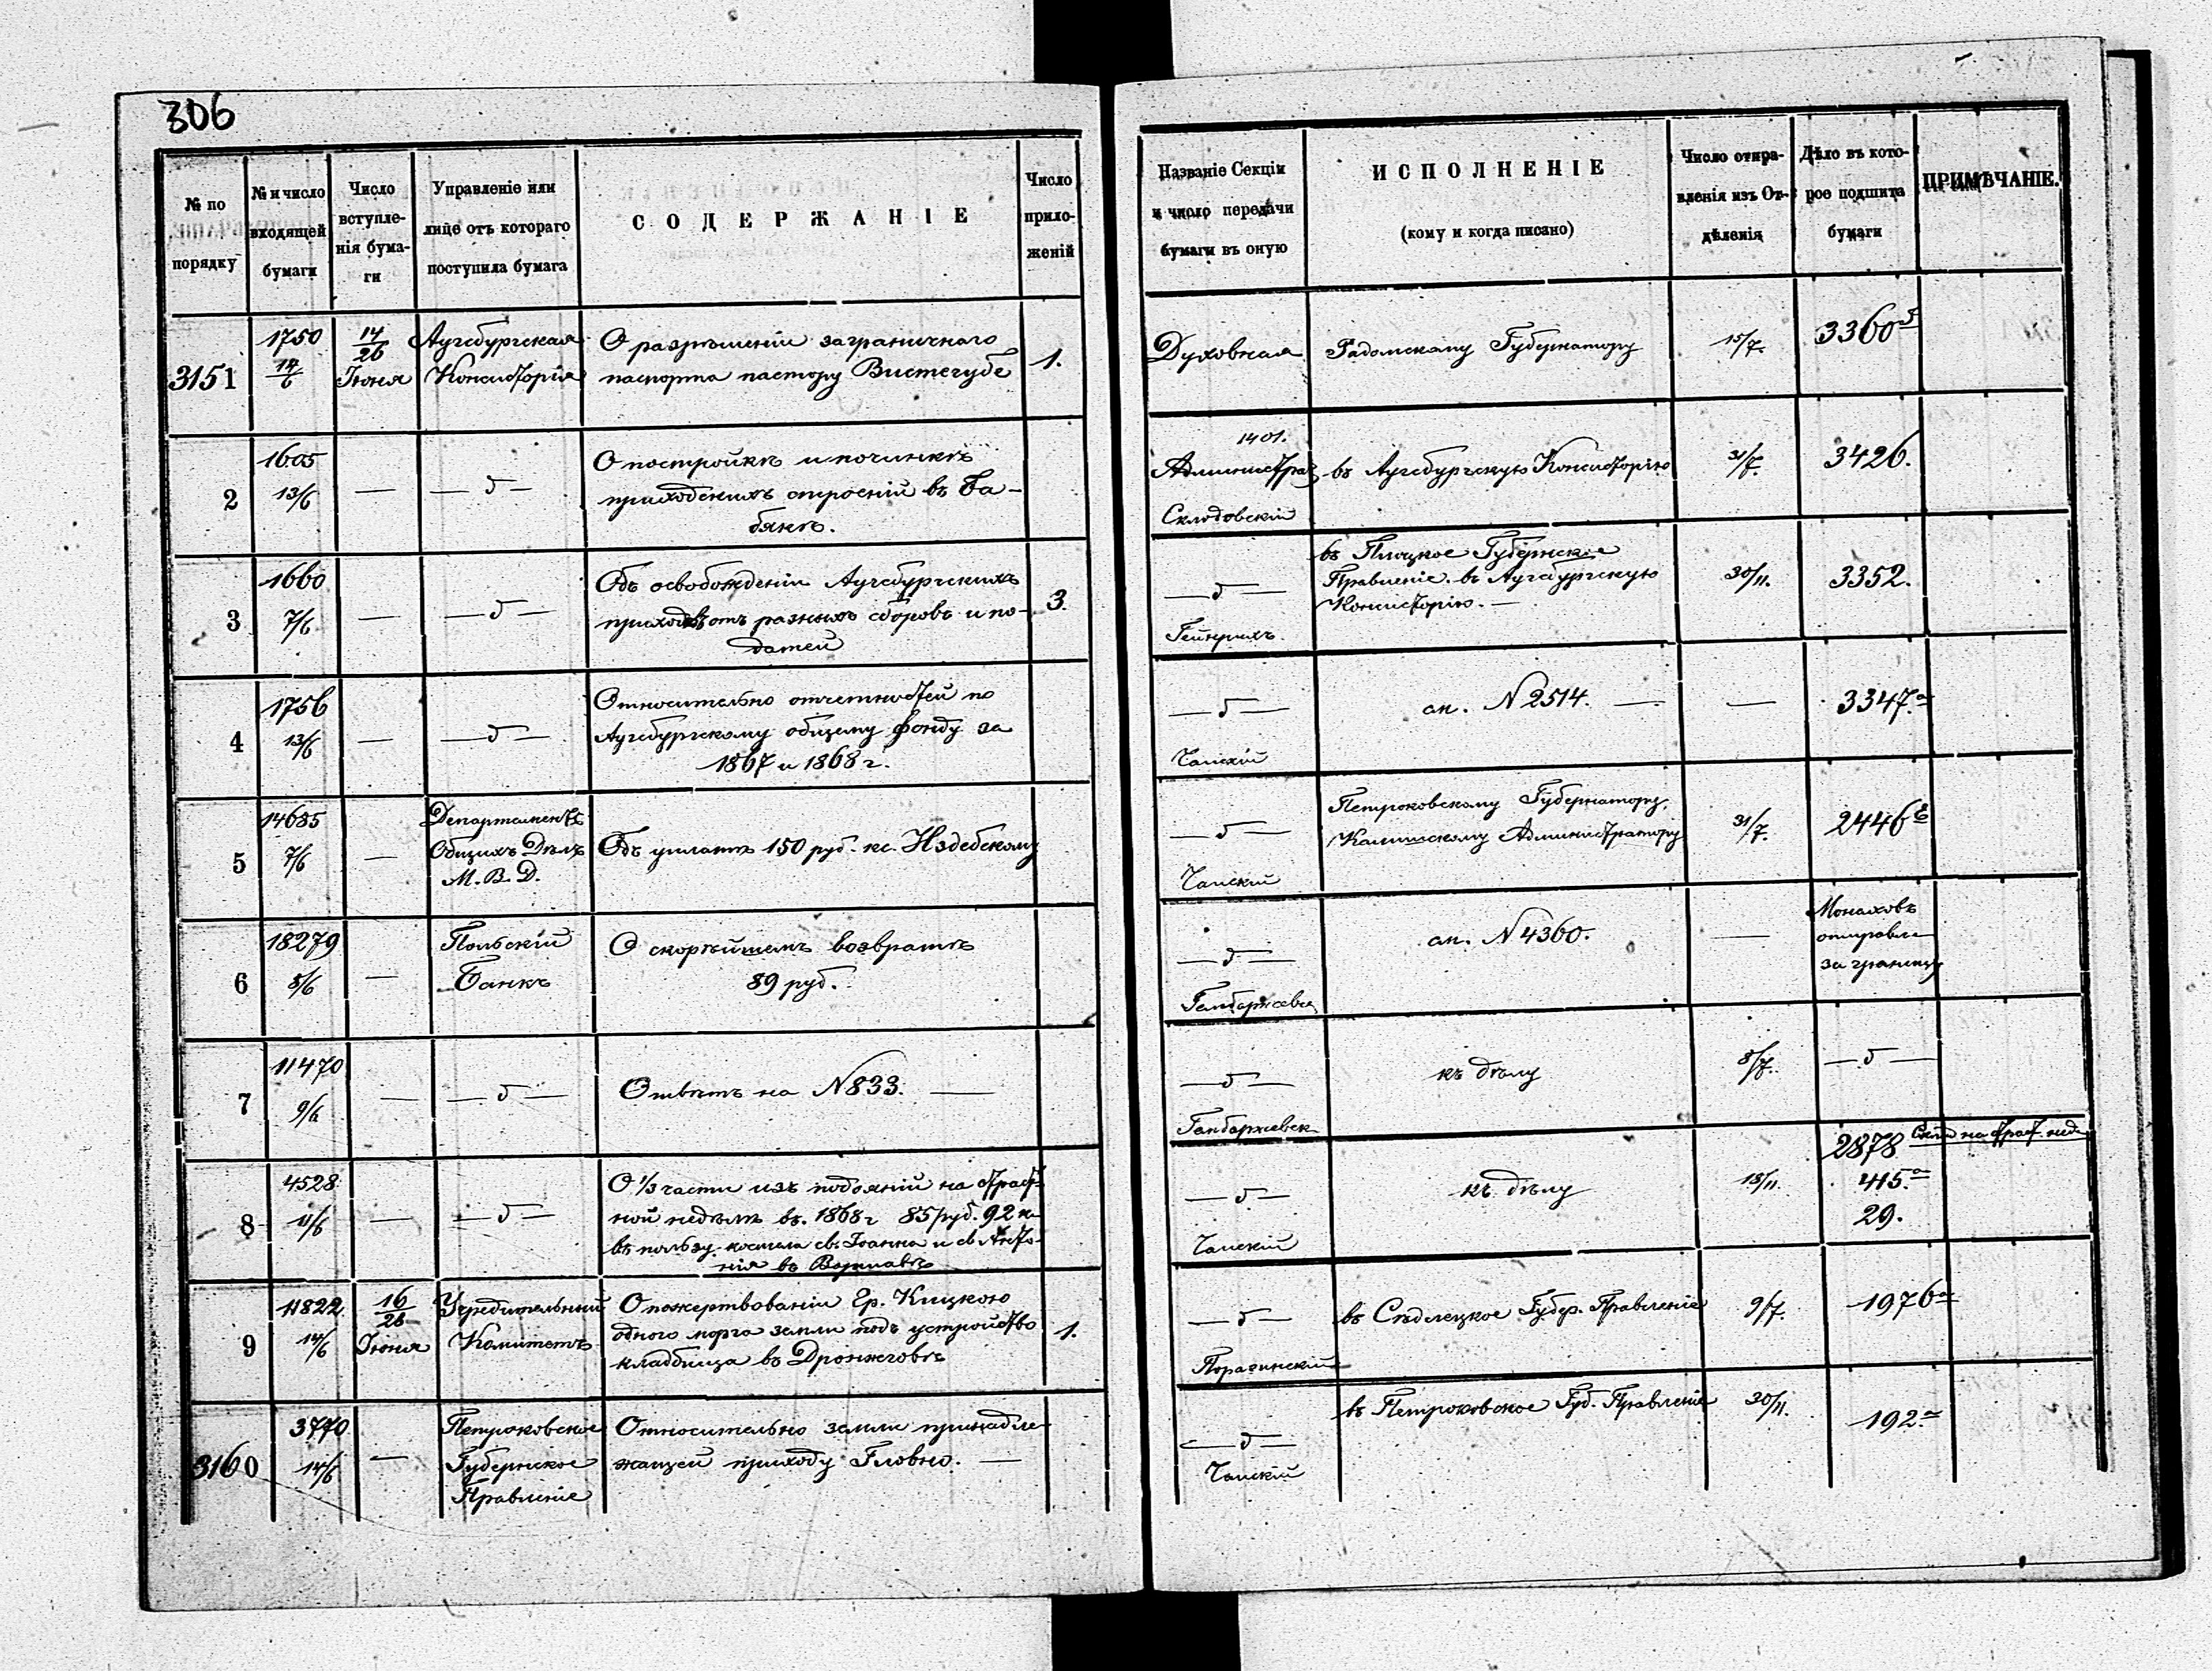 306
№ по
порядку
№ и число
входящей
бумаги
Число
вступле-
нія бума-
ги
Управленіе или
лице отъ котораго
поступила бумага
СОДЕРЖАНІЕ
Число
прило-
женій
Названіе Секціи
и число передачи
бумаги въ оную
ИСПОЛНЕНІЕ
(кому и когда писано)
Число отпра-
вленія изъ От-
дѣленія
Дѣло въ кото-
рое подшита
бумаги
ПРИМѢЧАНІЕ.
3151
1750
14/6
14/26
Іюня
Аугсбургская
Консисторія
О разрѣшеніи заграничнаго
паспорта пастору
1.
Духовная
Радомскому Губернатору
15/7.
3360
2
1605
13/6
—
— „ —
О постройкѣ и починкѣ
приходскихъ строеній въ Ба-
бякѣ.
1401.
Администрац
Склодовскій
въ Аугсбургскую Консисторію
31/7.
3426.
3
1660
7/6
—
— „ —
Объ освобожденіи Аугсбургскихъ
приходовъ отъ разныхъ сборовъ и по-
датей
3.
— „ —
Гейнрихъ.
въ Плоцкое Губернское
Правленіе. въ Аугсбургскую
Консисторію. —
30/11.
3352.
4
1756
13/6
—
— „ —
Относительно отчетностей по
Аугсбургскому общему фонду за
1867 и 1868 г.
— „ —
Чапскій
ст. N 2514. —
—
3347.а
5
14685
7/6
—
Департаментъ
Общихъ Дѣлъ
М. В. Д.
Объ уплатѣ 150 руб. кс. Издебскому
— „ —
Чапскій
Петроковскому Губернатору,
Калишскому Администратору
31/7.
2446
6
18279
8/6
—
Польскій
Банкъ
О скорѣйшемъ возвратѣ
89 руб.
— „ —
ст. N 4360.
—
Монаховъ
отправле
за границу
7
11470
9/6
—
— „ —
Отвѣтъ на N 833. —
— „ —
къ дѣлу
8/7.
— „ —
8
4528
11/6
—
— „ —
О 1/3 части изъ подаяній на страст-
ной недѣлѣ въ. 1868 г 85 руб. 92 к
въ пользу костела св. Іоанна и св Анто-
нія въ Варшавѣ
— „ —
Чапскій
къ дѣлу
18/11.
2878 на страст. нед
415.а
29.
9
11822
14/6
16/26
Іюня
Учредительный
Комитетъ
О пожертвованіи Гр. Кицкою
одного морга земли подъ устройство
кладбища въ Дронжговѣ
1.
— „ —
въ Сѣдлецкое Губер. Правленіе
9/7.
1976а
3160
3770
14/6
—
Петроковское
Губернское
Правленіе
Относительно земли принадле-
жащей приходу Гловно. —
— „ —
Чапскій
въ Петроковское Губ. Правленіе
30/11.
192.а